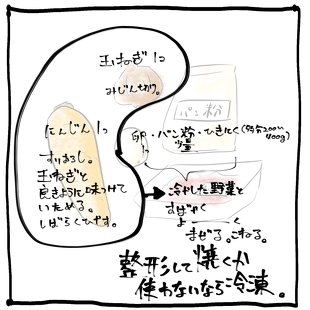 玉ねぎ 1コ
みじん切り。
にんじん 1つ
すりおろし。
玉ねぎと
良きように味つけて
いためる。
しばらくひやす。
パン粉
卵・パン粉・ひきにく
少量
冷やした野菜と
すばやく
よーーーく
まぜる。こねる。
整形して焼くか
使わないなら冷凍。